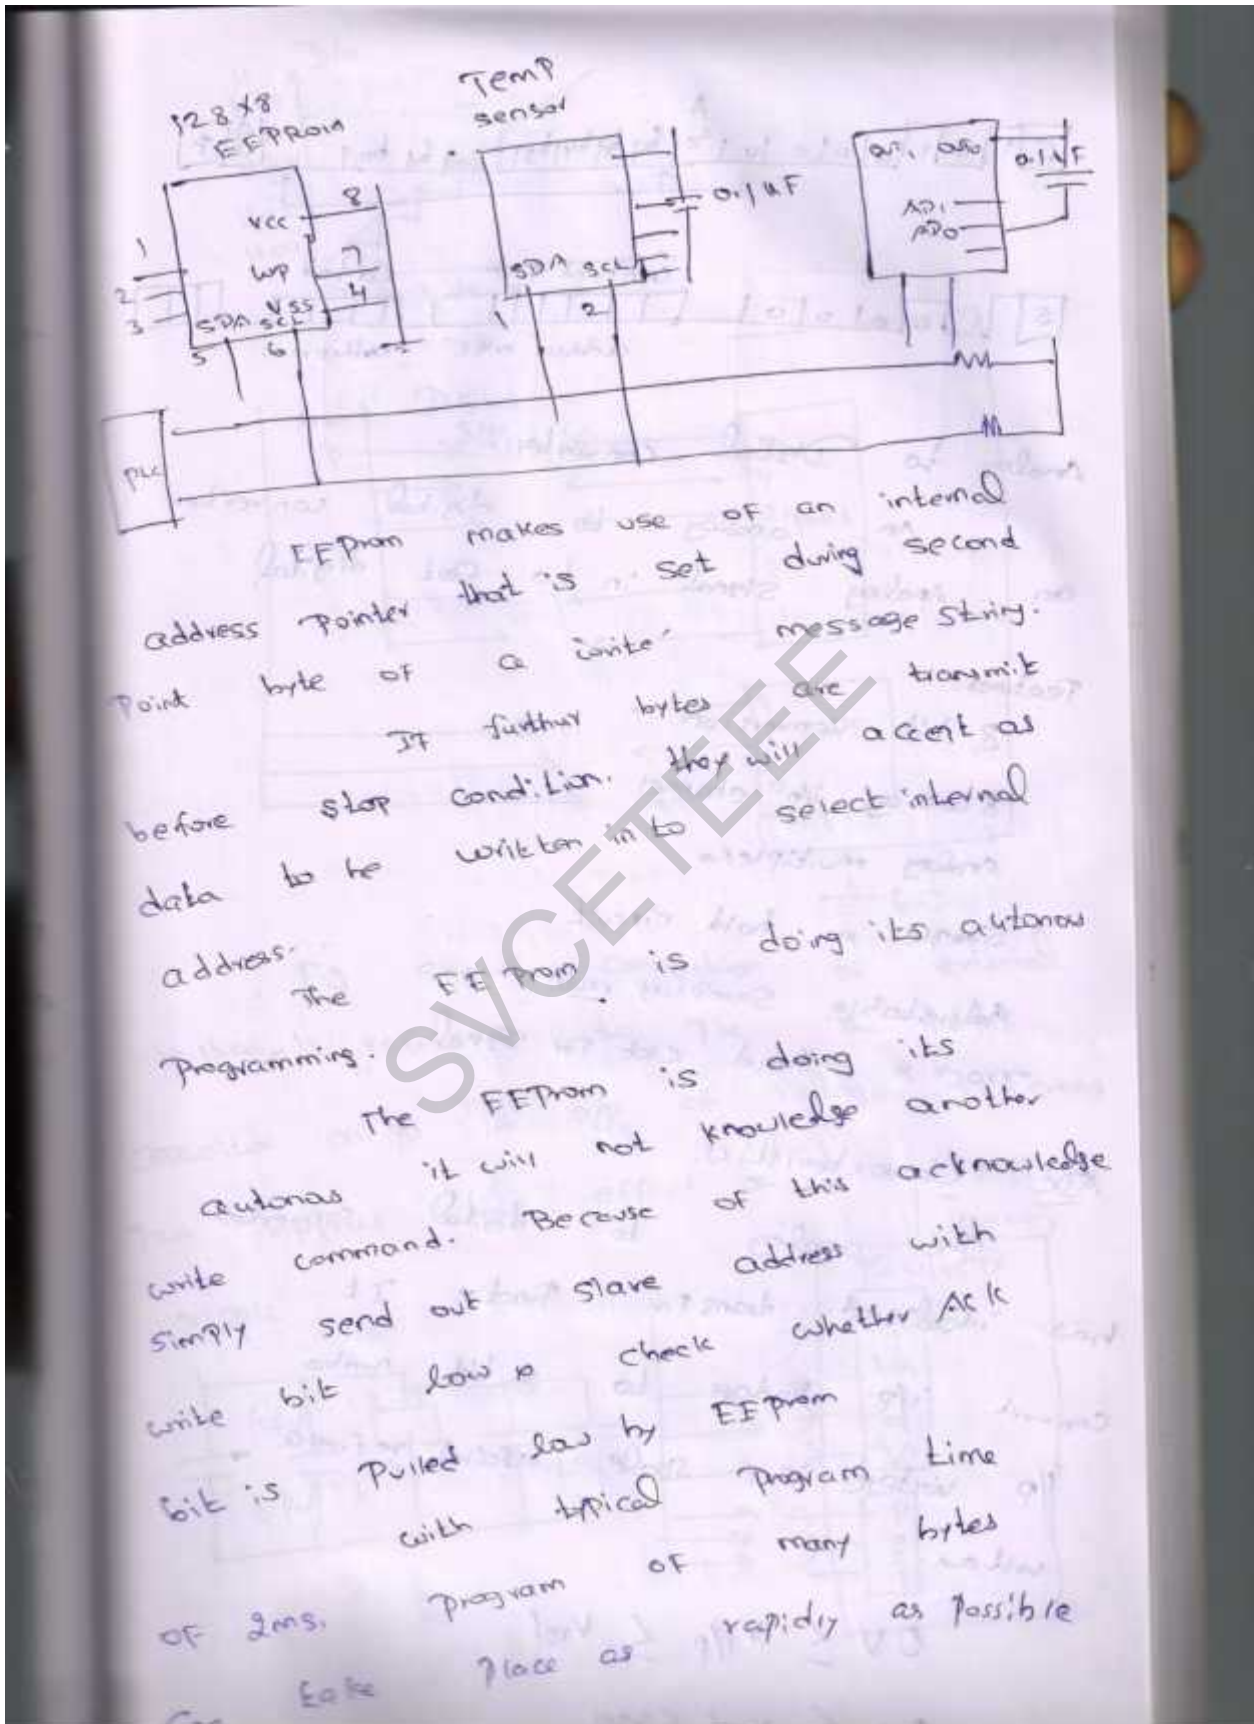 128 x 8
EEPROM
Temp
sensor
8
VCC
1
7
WP
2
4
VSS
3
SDA SCL
5
6
SDA SCL
1
2
0.1 uF
0.1 uF
AD1
AD0
PIC
EEProm makes use of an internal
address Pointer that is set during second
Point byte of a write message string.
If furthur bytes are transmit
before stop condition. they will accent as
data to be written in to select internal
address.
The EEProm is doing its autonow
Programming.
The EEProm is doing its
autonas it will not knowledge another
write command. Because of this acknowledge
simply send out slave address with
write bit low & check whether Ack
bit is Pulled low by EEProm
with typical Program time
of 2ms. Program of many bytes
Can take Place as rapidly as Possible
SVCETEEE